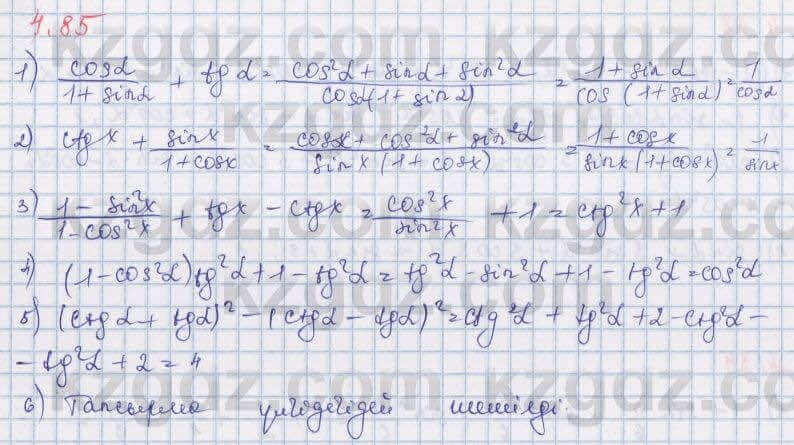 4.85
1) cosα/(1+sinα) + tgα = (cos²α + sinα + sin²α)/(cosα(1+sinα)) = (1+sinα)/(cos(1+sinα)) = 1/cosα
2) ctgx + sinx/(1+cosx) = (cosx + cos²α + sin²α)/(sinx(1+cosx)) = (1+cosx)/(sinx(1+cosx)) = 1/sinx
3) (1-sin²x)/(1-cos²x) + tgx - ctgx = cos²x/sin²x + 1 = ctg²x+1
4) (1-cos²α)tg²α+1-tg²α = tg²α - sin²α + 1 - tg²α = cos²α
5) (ctgα + tgα)² - (ctgα - tgα)² = ctg²α + tg²α + 2 - ctg²α -
- tg²α + 2 = 4
6) Тапсырма үлгідегідей шешілді.
kzgdz.com